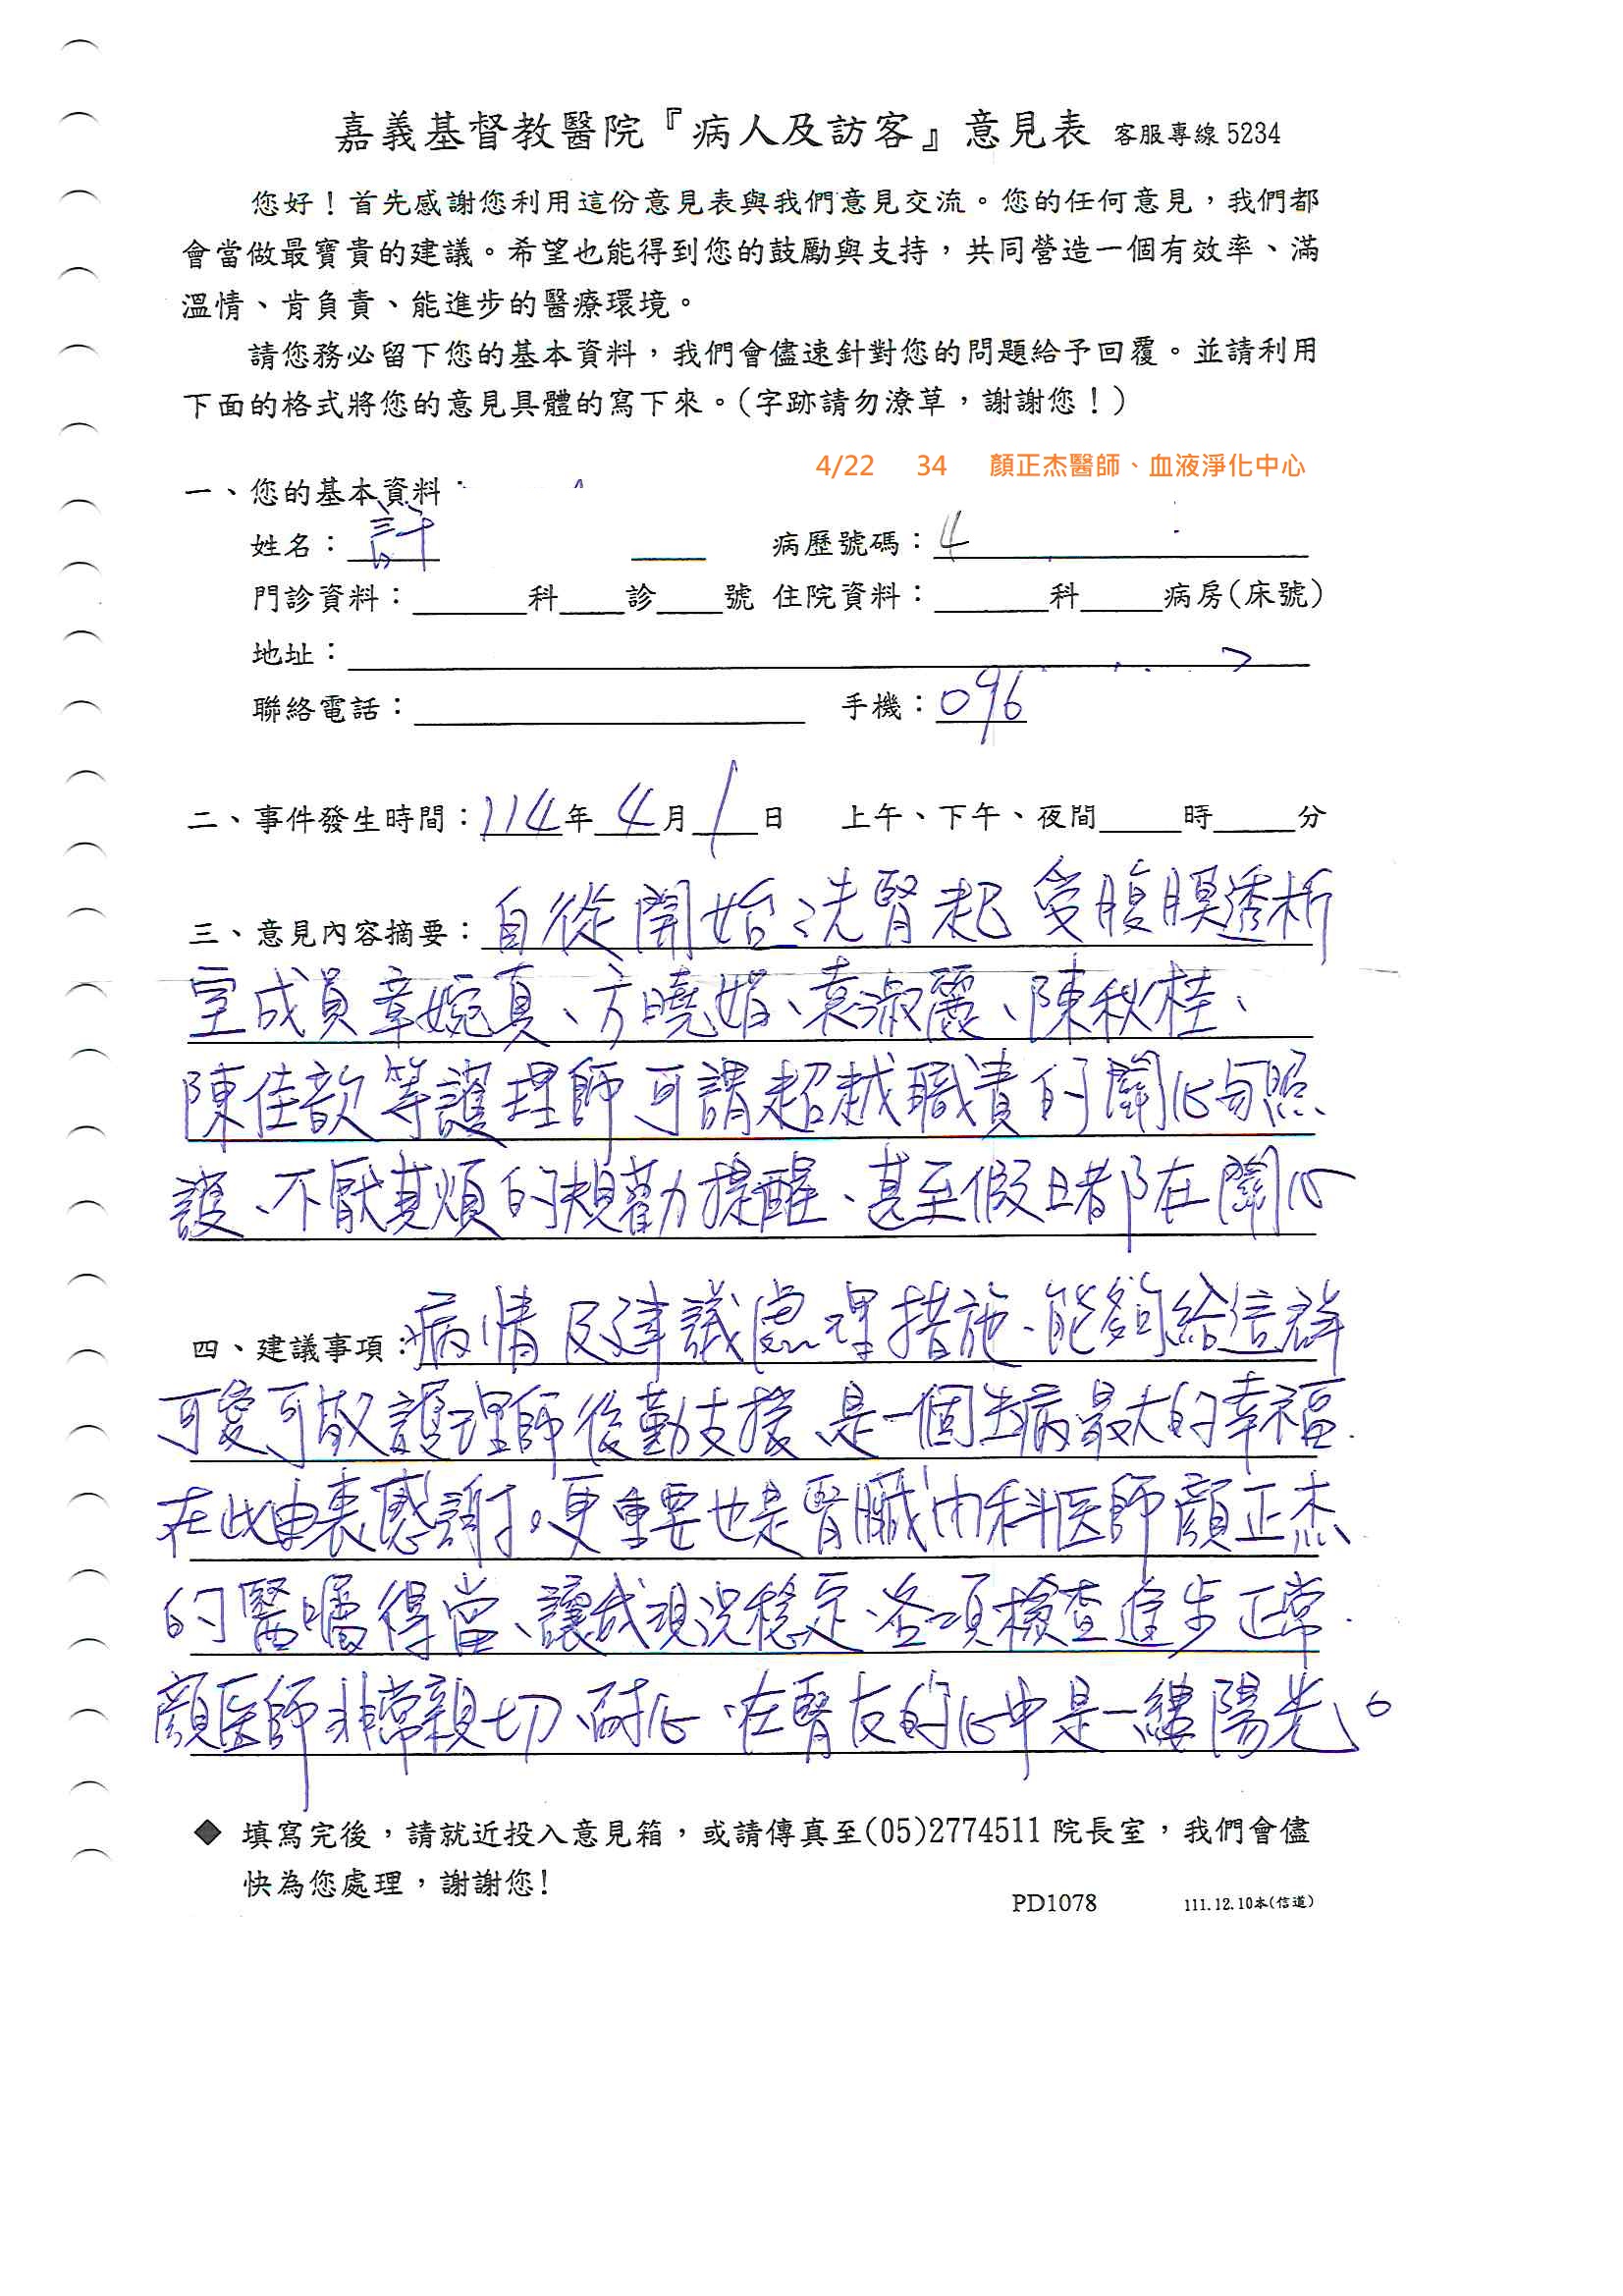 嘉義基督教醫院『病人及訪客』意見表 客服專線 5234
您好！首先感謝您利用這份意見表與我們意見交流。您的任何意見，我們都
會當做最寶貴的建議。希望也能得到您的鼓勵與支持，共同營造一個有效率、滿
溫情、肯負責、能進步的醫療環境。
請您務必留下您的基本資料，我們會儘速針對您的問題給予回覆。並請利用
下面的格式將您的意見具體的寫下來。(字跡請勿潦草，謝謝您！)
4/22 34 顏正杰醫師、血液淨化中心
一、您的基本資料：
姓名：許 病歷號碼：4
門診資料：科診號 住院資料：科病房(床號)
地址：
聯絡電話： 手機：096
二、事件發生時間：114年4月1日 上午、下午、夜間時分
三、意見內容摘要：自從開始洗腎起 受腹膜透析
室成員章婉真、方曉娟、袁淑麗、陳秋桂、
陳佳歆等護理師可謂超越職責的關心與照
護、不厭其煩的規勸提醒、甚至假日都在關心
四、建議事項：病情及建議處理措施、能夠給這群
可愛可敬護理師後勤支援、是一個生病最大的幸福.
在此由衷感謝。更重要也是腎臟內科医師顏正杰
的醫囑得當、讓我現況穩定、各項檢查進步正常.
顏医師非常親切、耐心、在腎友的心中是一縷陽光。
◆ 填寫完後，請就近投入意見箱，或請傳真至(05)2774511 院長室，我們會儘
快為您處理，謝謝您!
PD1078 111.12.10本(信道)